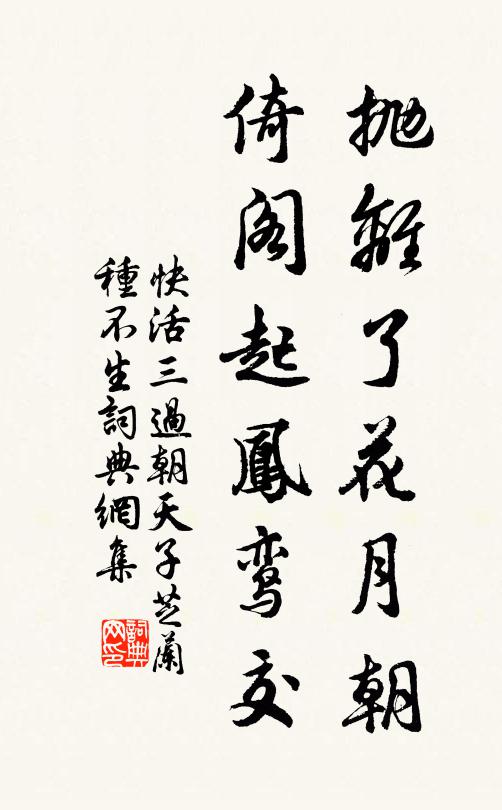 抛離了花月朝
倚阁起鳳鸾交
快活三過朝天子芝蘭
種不生詞典網集
詞典网印